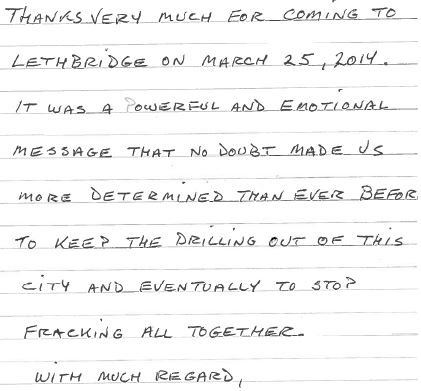 THANKS VERY MUCH FOR COMING TO
LETHBRIDGE ON MARCH 25, 2014.
IT WAS A POWERFUL AND EMOTIONAL
MESSAGE THAT NO DOUBT MADE US
MORE DETERMINED THAN EVER BEFOR
TO KEEP THE DRILLING OUT OF THIS
CITY AND EVENTUALLY TO STOP
FRACKING ALL TOGETHER.
WITH MUCH REGARD,